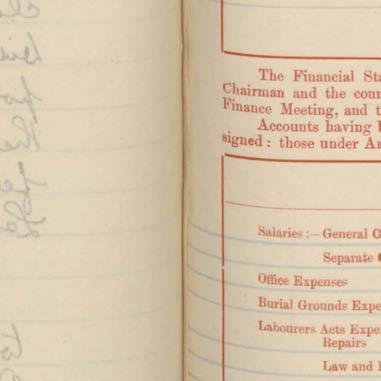 The Financial Sta
Chairman and the coun
Finance Meeting, and t
Accounts having b
signed : those under Ar
Salaries :— General C
Separate
Office Expenses
Burial Grounds Expe
Labourers Acts Expe
Repairs
Law and